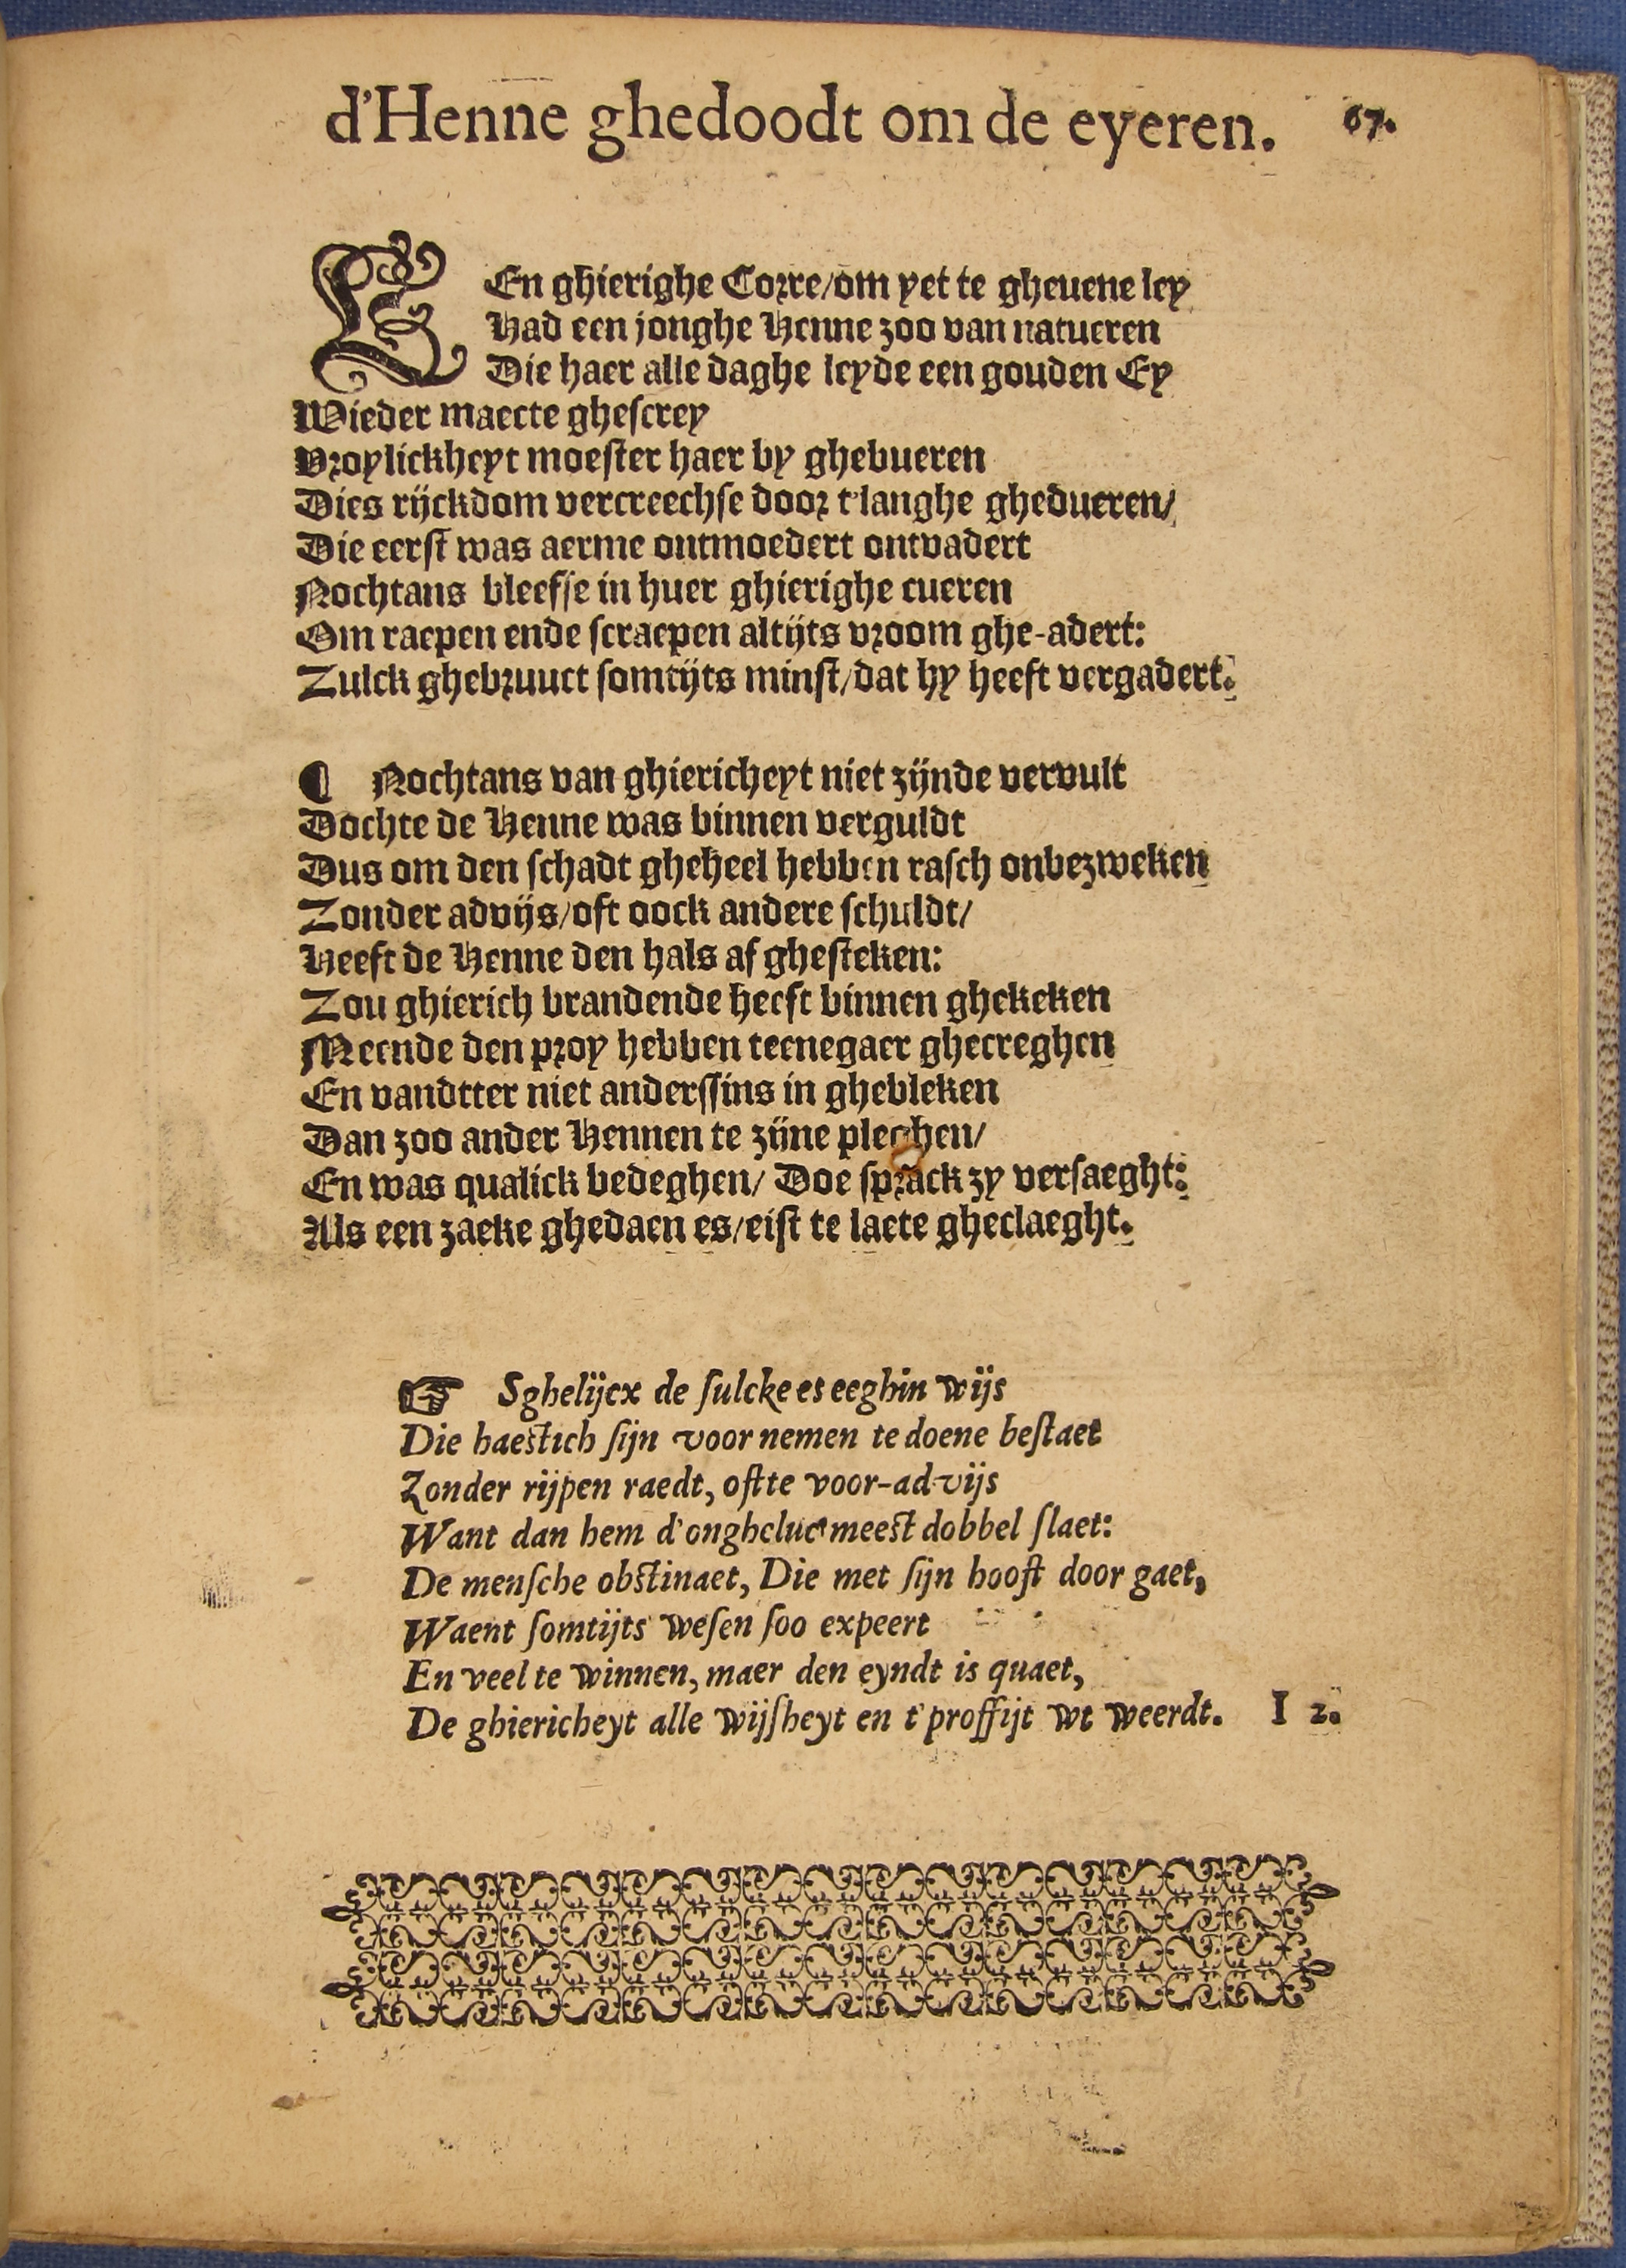 d'Henne ghedoodt om de eyeren. 67.
EEn ghierighe Corre/om yet te gheuene ley
Had een jonghe Henne zoo van natueren
Die haer alle daghe leyde een gouden Ey
Wieder maecte ghescrey
Vroylickheyt moester haer by ghebueren
Dies rijckdom vercreechse door t'langhe ghedueren/
Die eerst was aerme ontmoedert ontvadert
Nochtans bleefse in huer ghierighe cueren
Om raepen ende scraepen altijts vroom ghe-adert:
Zulck ghebruuct somtijts minst/dat hy heeft vergadert.
¶ Nochtans van ghiericheyt niet zijnde vervult
Dochte de Henne was binnen verguldt
Dus om den schadt gheheel hebben rasch onbezweken
Zonder advijs/oft oock andere schuldt/
Heeft de Henne den hals af ghesteken:
Zou ghierich brandende heeft binnen ghekeken
Meende den proy hebben teenegaer ghecreghen
En vandtter niet anderssins in ghebleken
Dan zoo ander Hennen te zijne pleghen/
En was qualick bedeghen/ Doe sprack zy versaeght:
Als een zaeke ghedaen es/eist te laete gheclaeght.
☞ Sghelijcx de sulcke es eeghin wijs
Die haestich sijn voornemen te doene bestaet
Zonder rijpen raedt, ofte voor-advijs
Want dan hem d'ongheluc meest dobbel slaet:
De mensche obstinaet, Die met sijn hooft door gaet,
Waent somtijts wesen soo expeert
En veel te winnen, maer den eyndt is quaet,
De ghiericheyt alle wijsheyt en t'proffijt wt weerdt. I 2.